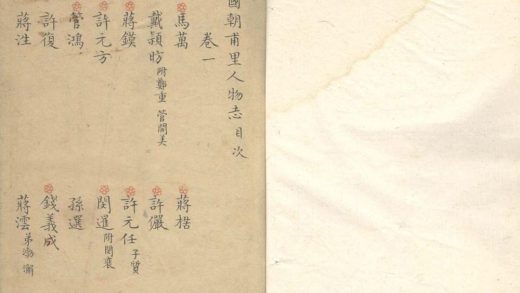 國朝甫里人物志目次
卷一
馬萬 蔣楛
戴穎昉 附鄭重 管閒美 許儼
蔣鏌 許元任 子質
許元方 閔暹 附閔裒
管鴻 孫選
許復 錢義成
蔣泩 蔣澐 弟泐